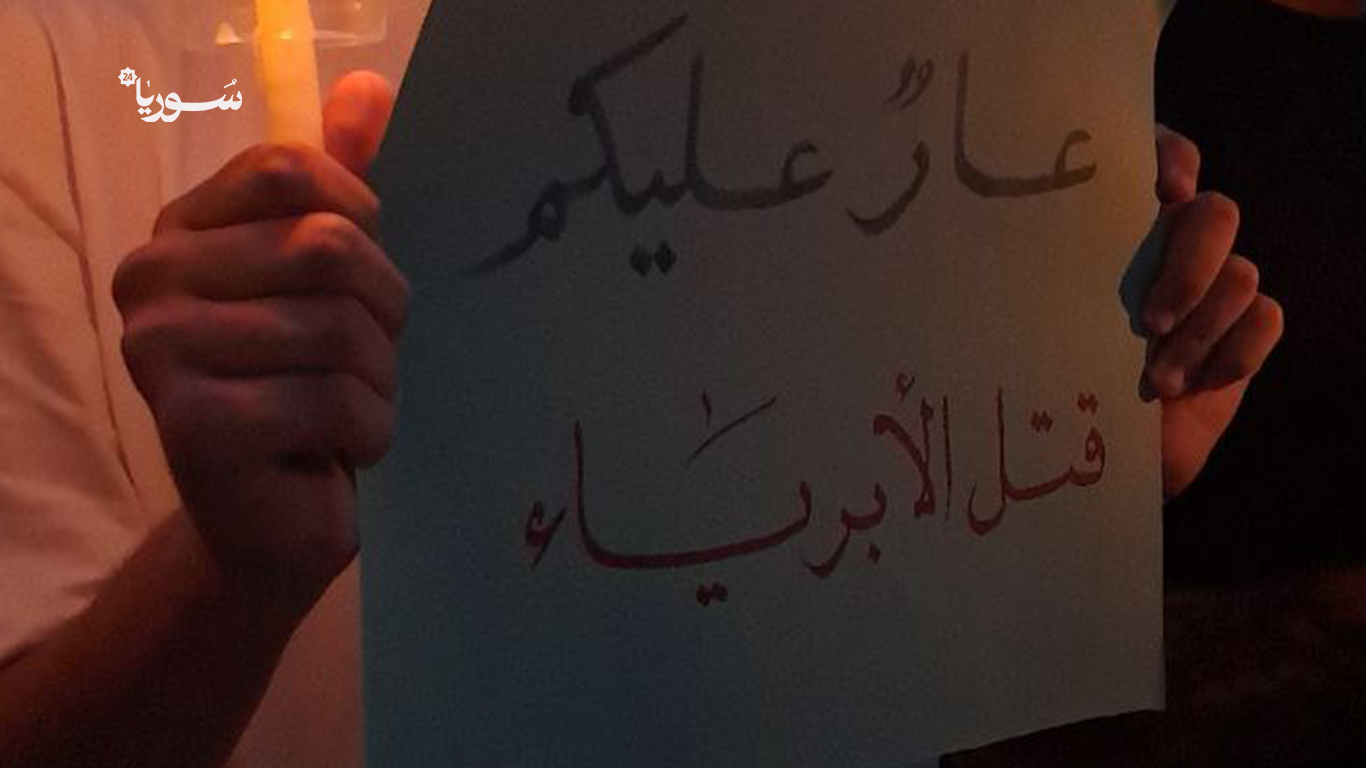 سُوريا 24
عارٌ عليكم
قتل الأبرياء